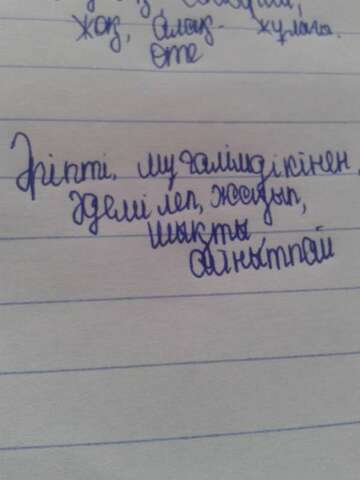 жоқ, алақ- жұлаға.
өте
Әріпті. мұғалімдікінен,
Әдемілеп, жазып,
шықты
айнытпай